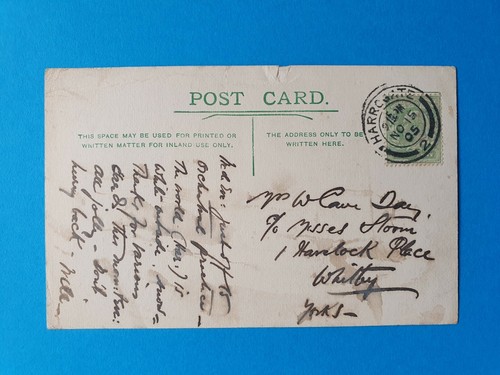 POST CARD.
THIS SPACE MAY BE USED FOR PRINTED OR
WRITTEN MATTER FOR INLAND USE ONLY.
THE ADDRESS ONLY TO BE
WRITTEN HERE.
HARROGATE
NO 15
05
2
just off to
orchestral practice -
The world is
white outside
Thanks for various
all jolly - Don't
hurry back -
W Cave Day,
c/o Misses Storm
1 Havelock Place
Whitby
Yorks -